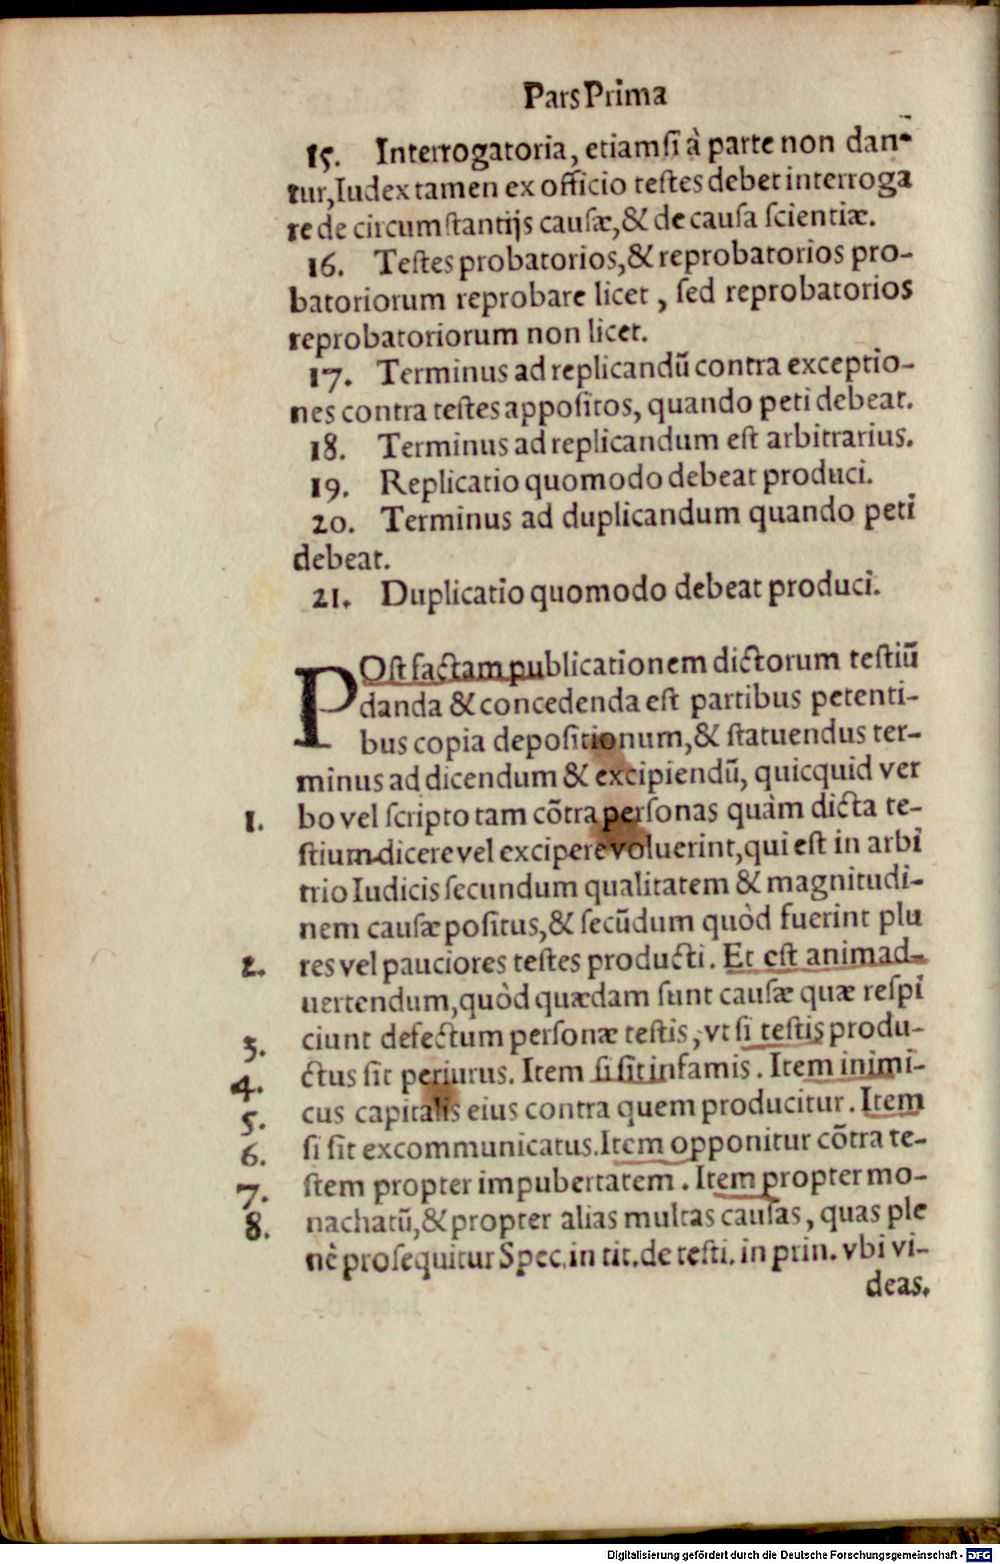 Pars Prima
15. Interrogatoria, etiamsi à parte non dan-
tur, Iudex tamen ex officio testes debet interroga
re de circumstantijs causæ, & de causa scientiæ.
16. Testes probatorios, & reprobatorios pro-
batoriorum reprobare licet, sed reprobatorios
reprobatoriorum non licet.
17. Terminus ad replicandū contra exceptio-
nes contra testes appositos, quando peti debeat.
18. Terminus ad replicandum est arbitrarius.
19. Replicatio quomodo debeat produci.
20. Terminus ad duplicandum quando peti
debeat.
21. Duplicatio quomodo debeat produci.
POst factam publicationem dictorum testiū
danda & concedenda est partibus petenti-
bus copia depositionum, & statuendus ter-
minus ad dicendum & excipiendū, quicquid ver
1. bo vel scripto tam cōtra personas quàm dicta te-
stium dicere vel excipere voluerint, qui est in arbi
trio Iudicis secundum qualitatem & magnitudi-
nem causæ positus, & secūdum quòd fuerint plu
2. res vel pauciores testes producti. Et est animad-
uertendum, quòd quædam sunt causæ quæ respi
3. ciunt defectum personæ testis, vt si testis produ-
4. ctus sit periurus. Item si sit infamis. Item inimi-
5. cus capitalis eius contra quem producitur. Item
6. si sit excommunicatus. Item opponitur cōtra te-
7. stem propter impubertatem. Item propter mo-
8. nachatū, & propter alias multas causas, quas ple
nè prosequitur Spec. in tit. de testi. in prin. vbi vi-
deas.
Digitalisierung gefördert durch die Deutsche Forschungsgemeinschaft - DFG